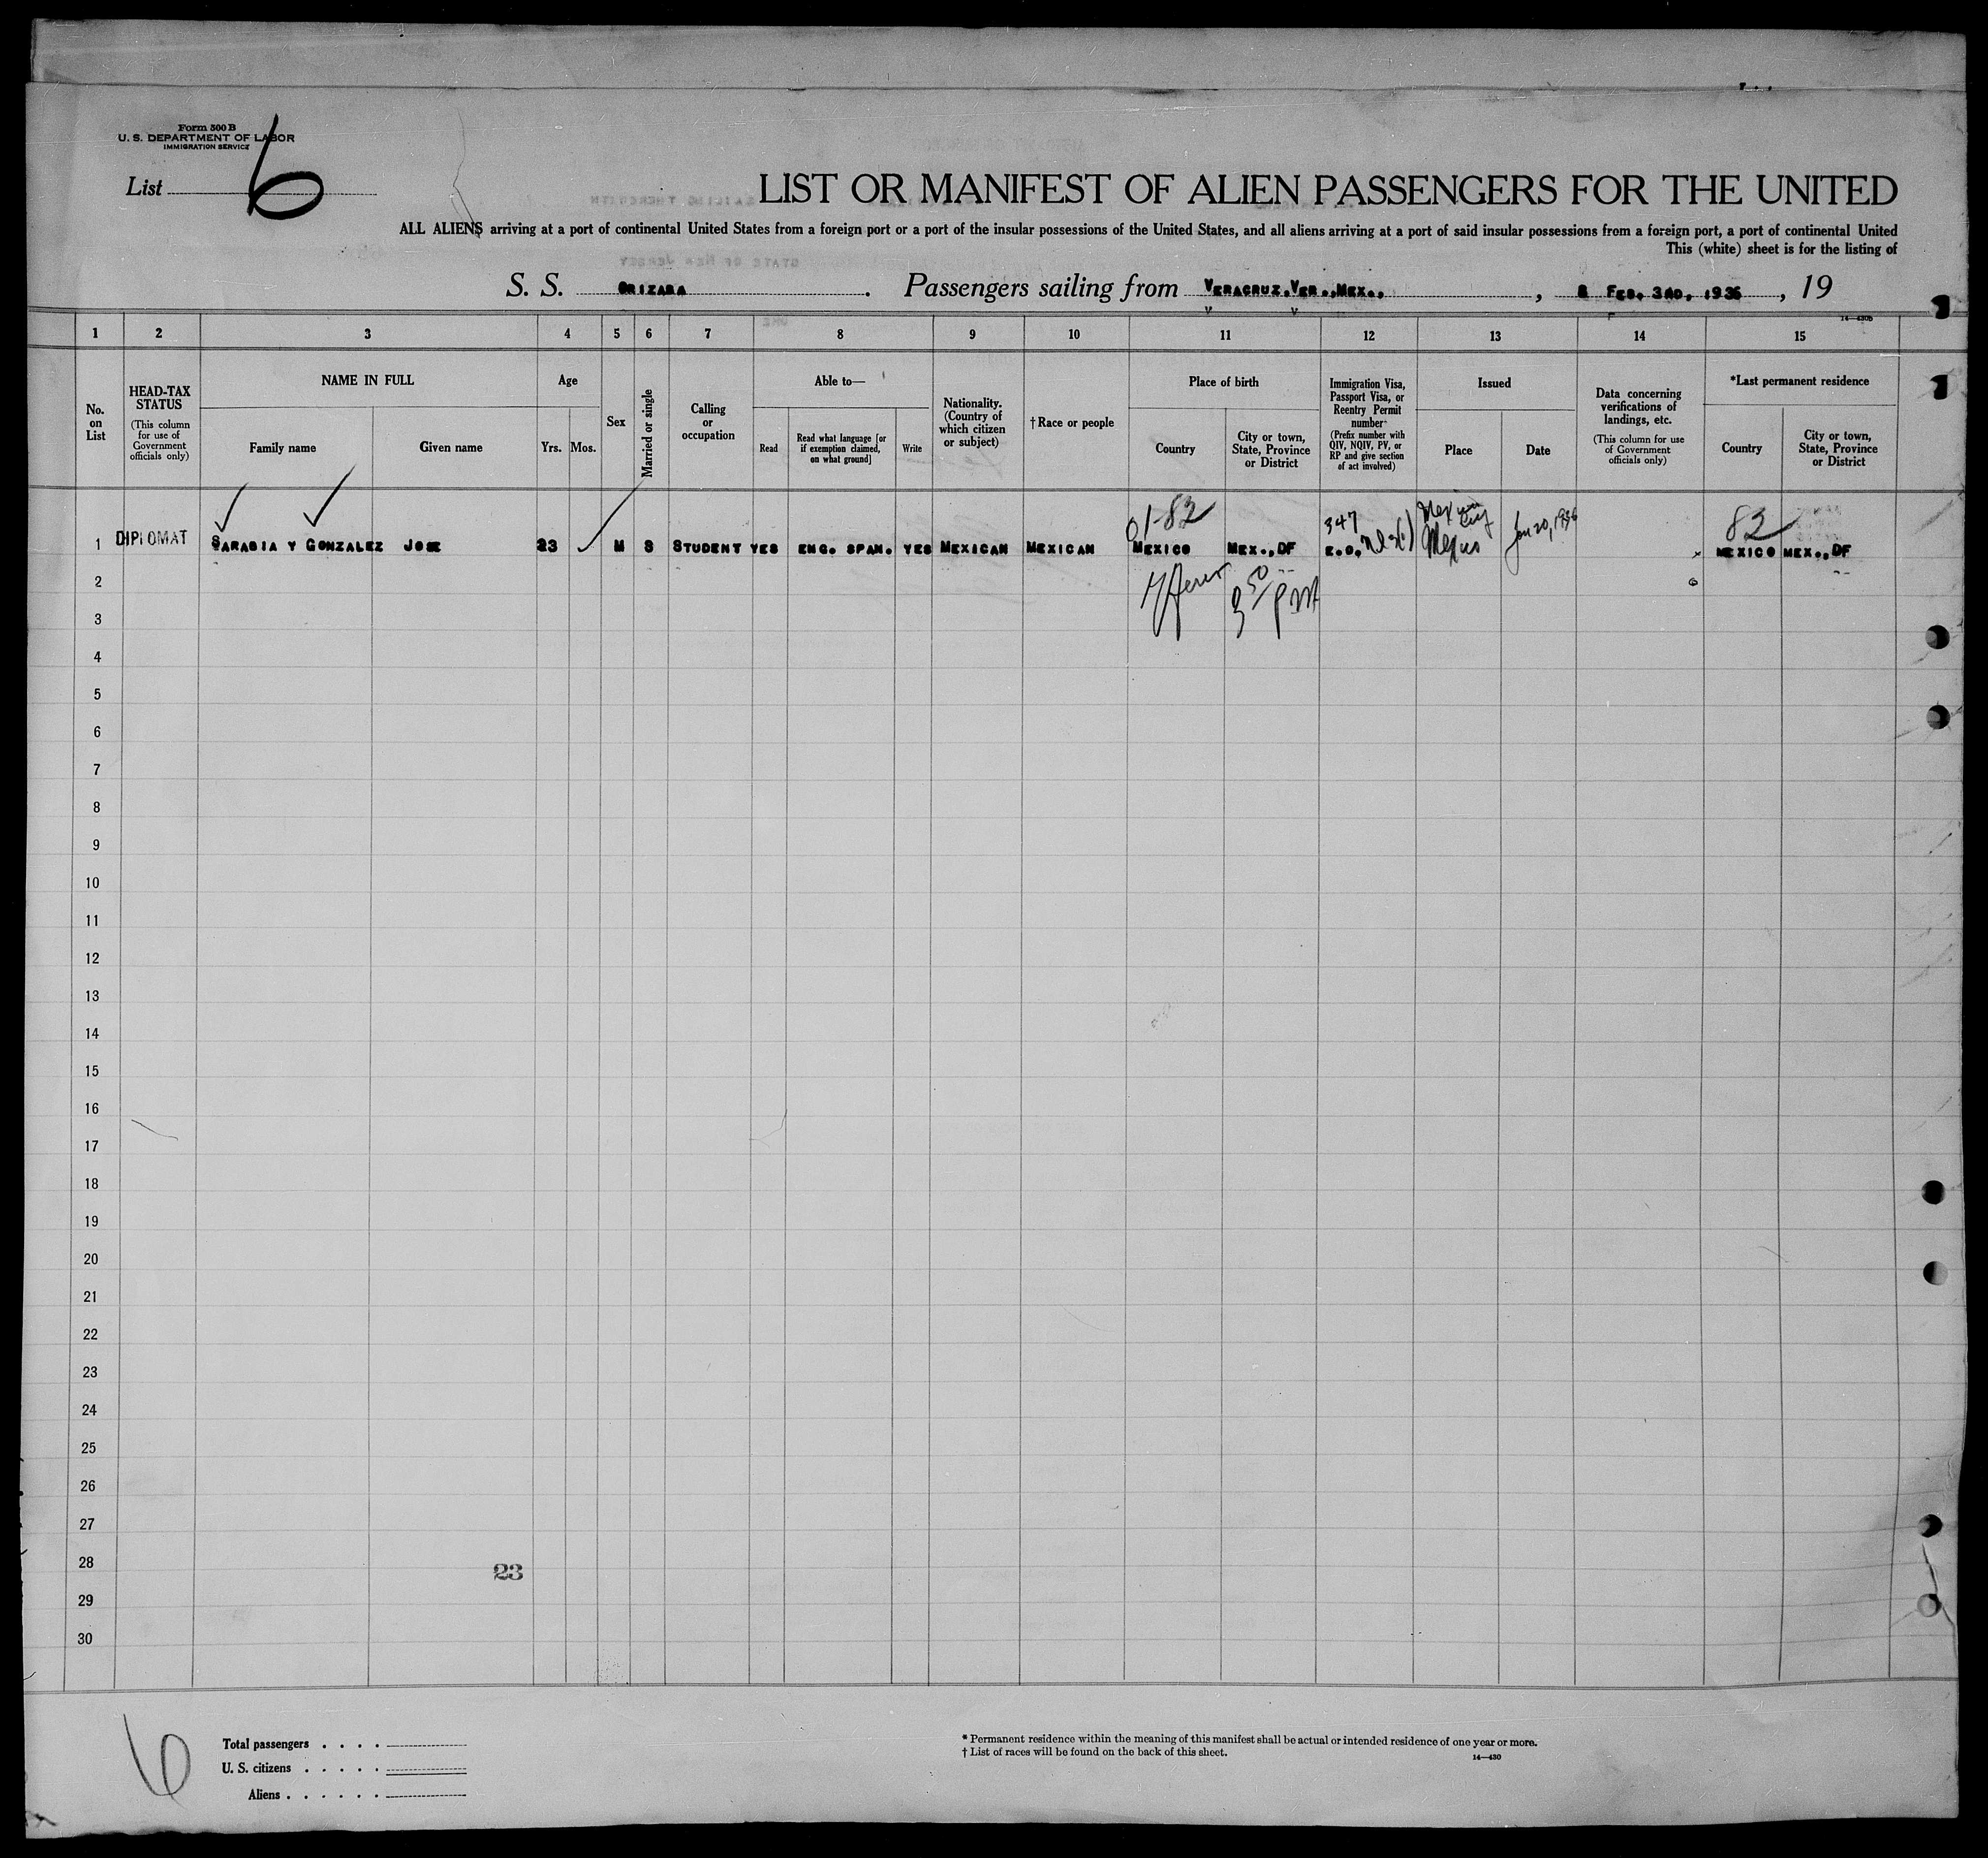 Form 500 B
U. S. DEPARTMENT OF LABOR
IMMIGRATION SERVICE
List 6
LIST OR MANIFEST OF ALIEN PASSENGERS FOR THE UNITED
ALL ALIENS arriving at a port of continental United States from a foreign port or a port of the insular possessions of the United States, and all aliens arriving at a port of said insular possessions from a foreign port, a port of continental United
This (white) sheet is for the listing of
STATE OF NEW JERSEY
S. S. ORIZABA. Passengers sailing from VERACRUZ, VER., MEX., , FEB. 3RD, 1936, 19
14—430B
1 2 3 4 5 6 7 8 9 10 11 12 13 14 15
No. on List
HEAD-TAX STATUS
(This column for use of Government officials only)
NAME IN FULL
Family name
Given name
Age
Yrs.
Mos.
Sex
Married or single
Calling or occupation
Able to—
Read
Read what language [or if exemption claimed, on what ground]
Write
Nationality. (Country of which citizen or subject)
†Race or people
Place of birth
Country
City or town, State, Province or District
Immigration Visa, Passport Visa, or Reentry Permit number
(Prefix number with QIV, NQIV, PV, or RP and give section of act involved)
Issued
Place
Date
Data concerning verifications of landings, etc.
(This column for use of Government officials only)
*Last permanent residence
Country
City or town, State, Province or District
01-82
347
Mexico City
82
1 DIPLOMAT SARABIA Y GONZALEZ JOSE 23 M S STUDENT YES ENG. SPAN. YES MEXICAN MEXICAN MEXICO MEX., DF E.O. Mexico Jan 20, 1936 MEXICO MEX., DF
2
3 50 PM
3
4
5
6
7
8
9
10
11
12
13
14
15
16
17
18
19
20
21
22
23
24
25
26
27
28
23
29
30
6
Total passengers . . . .
U. S. citizens . . . . .
Aliens . . . . . .
* Permanent residence within the meaning of this manifest shall be actual or intended residence of one year or more.
† List of races will be found on the back of this sheet.
14—430